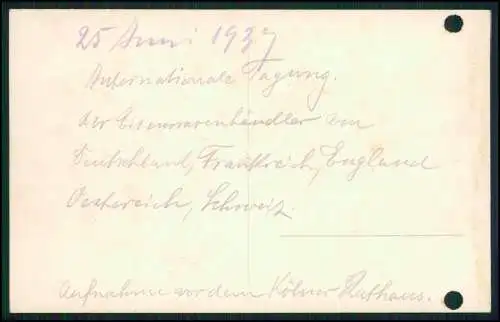 25 Juni 1937
Internationale Tagung.
der Eisenwarenhändler von
Deutschland, Frankreich, England
Oestereich, Schweiz.
Aufnahme vor dem Kölner Rathaus.